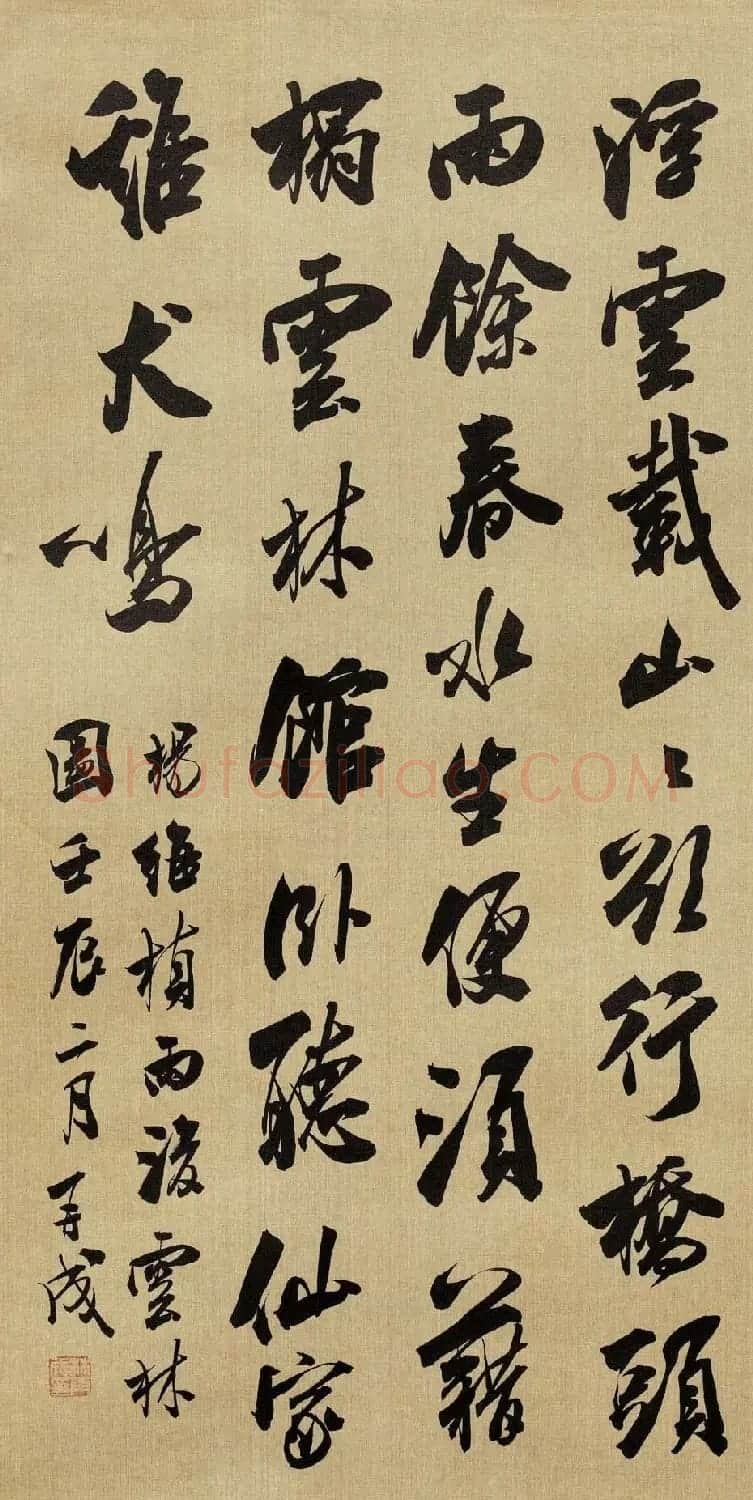 浮雲載山〻欲行橋頭
雨餘春水生便須藉
榻雲林館卧聽仙家
雞犬鳴
楊維楨雨後雲林
圖壬辰二月成
Shufaziliao.COM